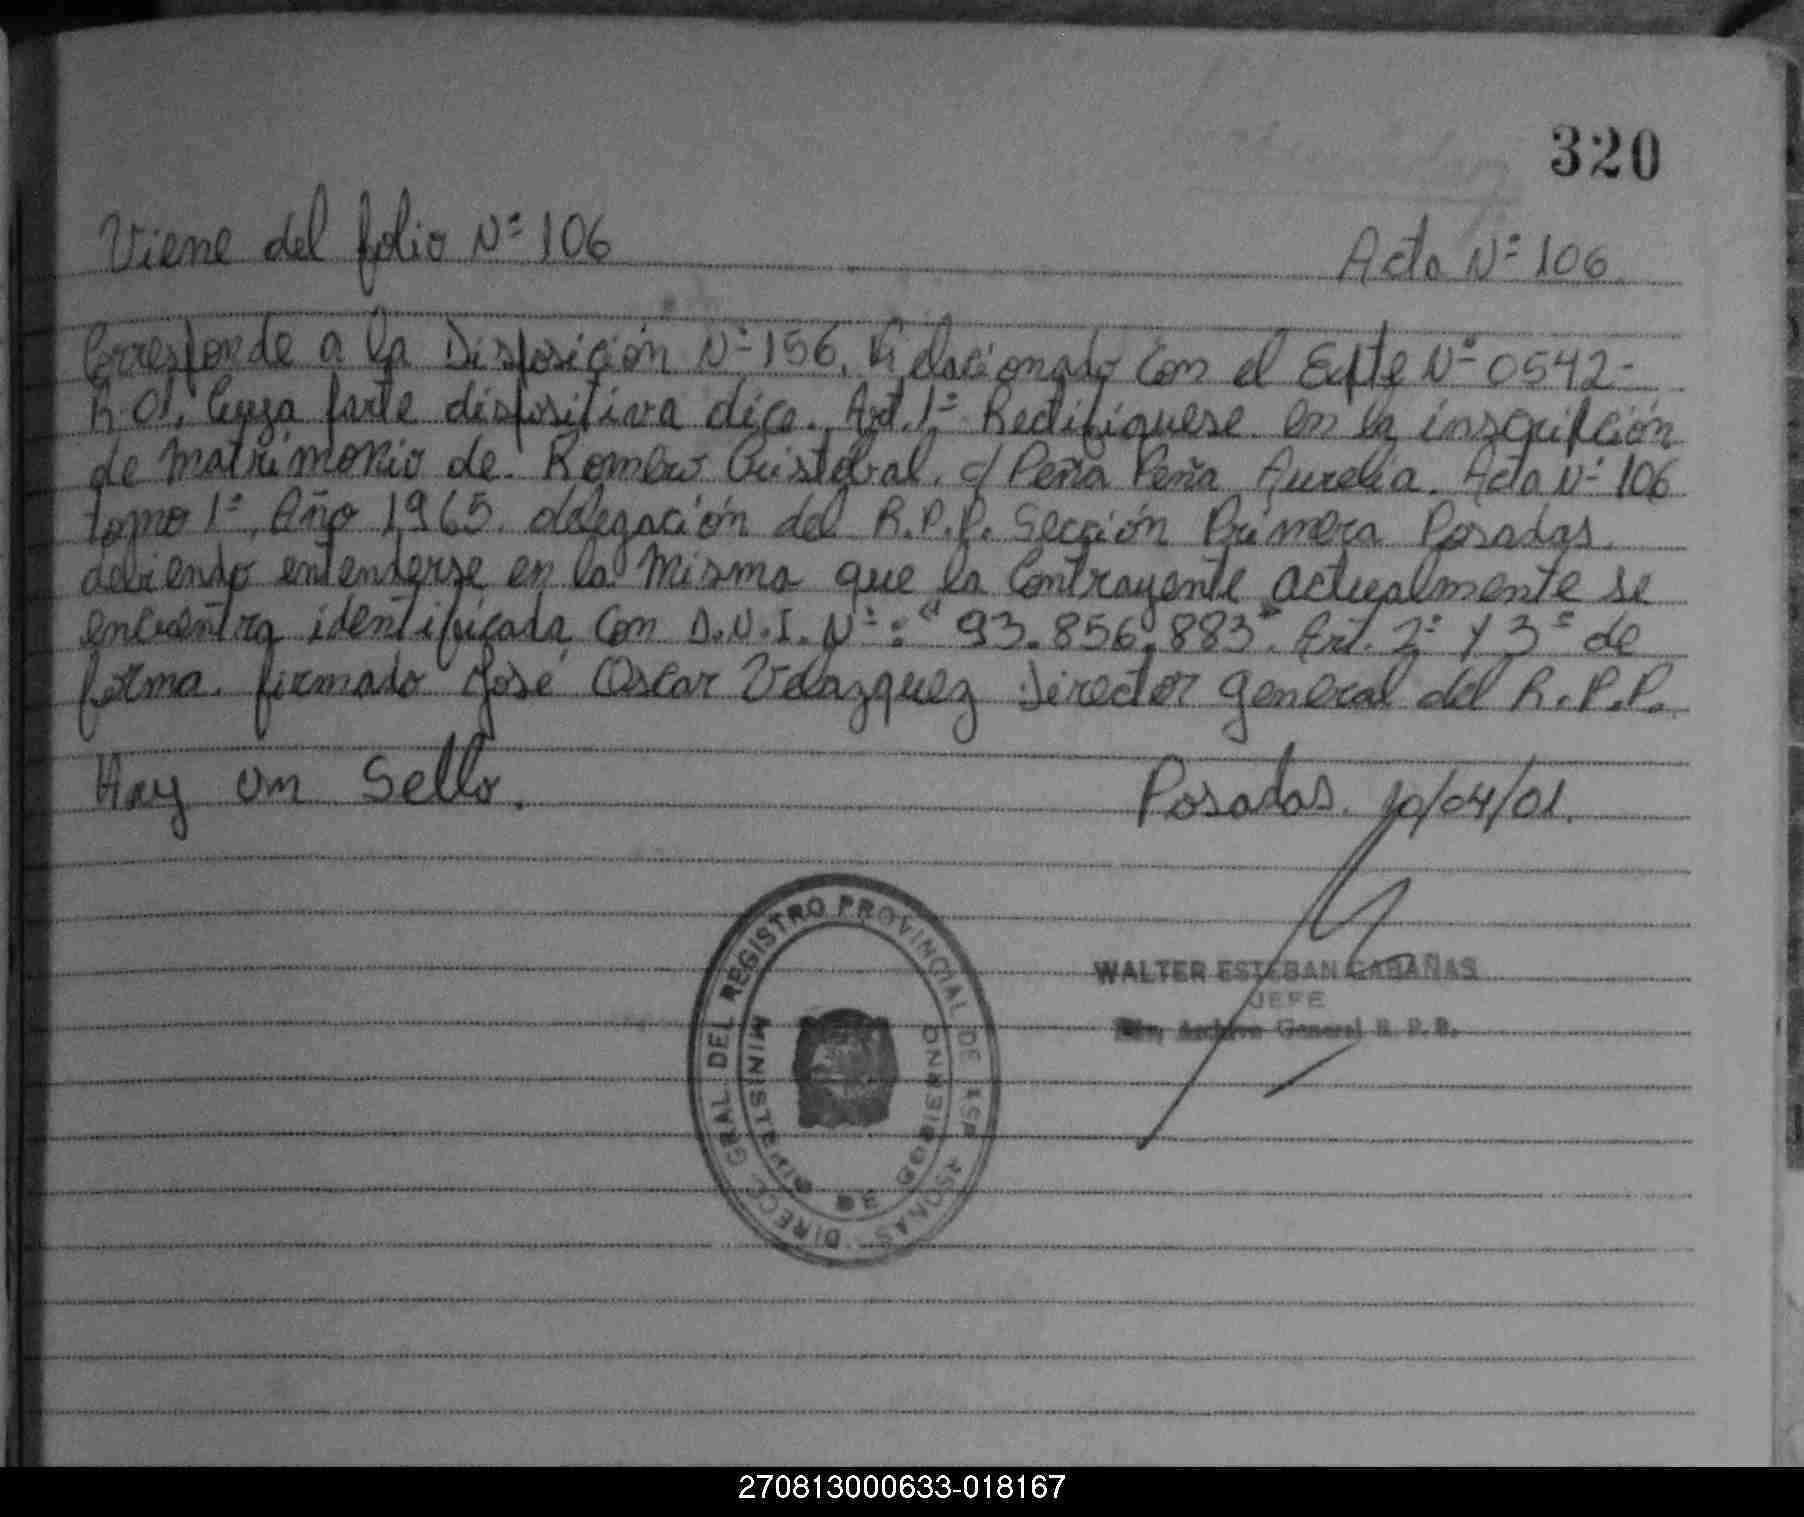 320
Viene del folio Nº 106 Acta Nº 106
Corresponde a la Disposición Nº 156. Relacionado con el Expte Nº 0542-
R-01. Cuya parte dispositiva dice. Art. 1º Rectifiquese en la inscripción
de matrimonio de Romero Cristóbal. c/ Peña Peña Aurelia. Acta Nº 106
tomo 1º. Año 1965. delegación del R.P.P. Sección Primera Posadas.
debiendo entenderse en la misma que la Contrayente actualmente se
encuentra identificada con D.N.I. Nº: "93.856.883". Art. 2º y 3º de
forma. firmado José Oscar Velazquez Director general del R.P.P.
Hay un Sello. Posadas. 10/04/01.
DIRECC. GRAL DEL REGISTRO PROVINCIAL DE PERSONAS
MINISTERIO DE GOBIERNO
WALTER ESTEBAN CABAÑAS
JEFE
Archivo General R. P. P.
270813000633-018167